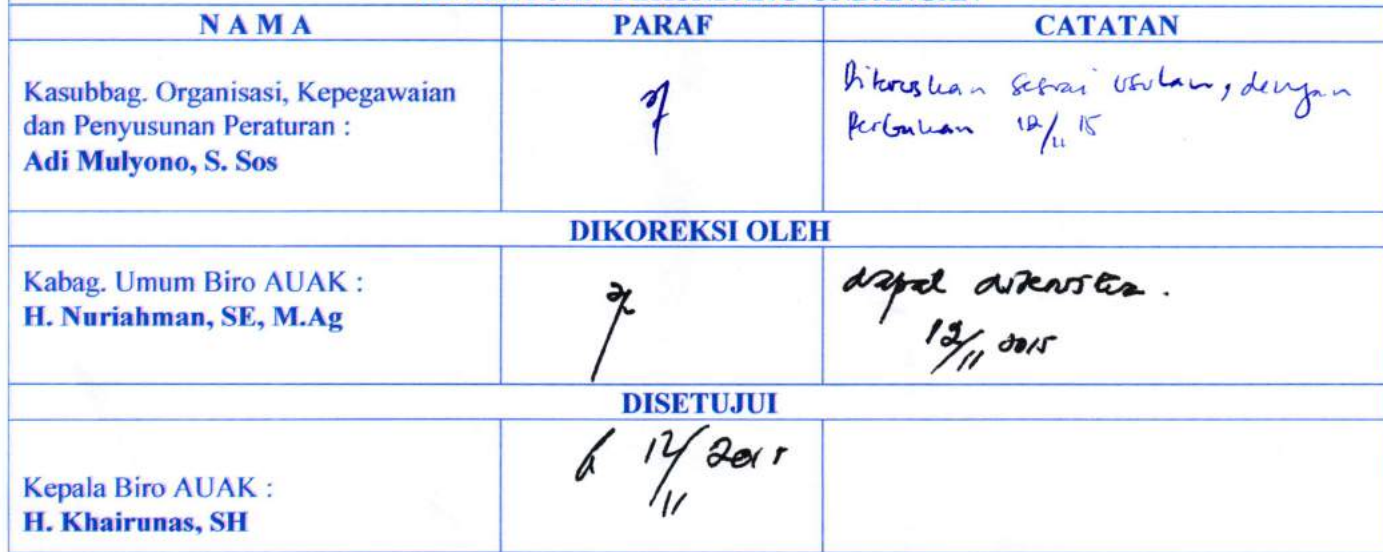 NAMA PARAF CATATAN
Kasubbag. Organisasi, Kepegawaian
dan Penyusunan Peraturan :
Adi Mulyono, S. Sos
Diteruskan sesuai usulan, dengan
Perbaikan 12/11 15
DIKOREKSI OLEH
Kabag. Umum Biro AUAK :
H. Nuriahman, SE, M.Ag
dapat diteruskan.
12/11 2015
DISETUJUI
12/11 2015
Kepala Biro AUAK :
H. Khairunas, SH